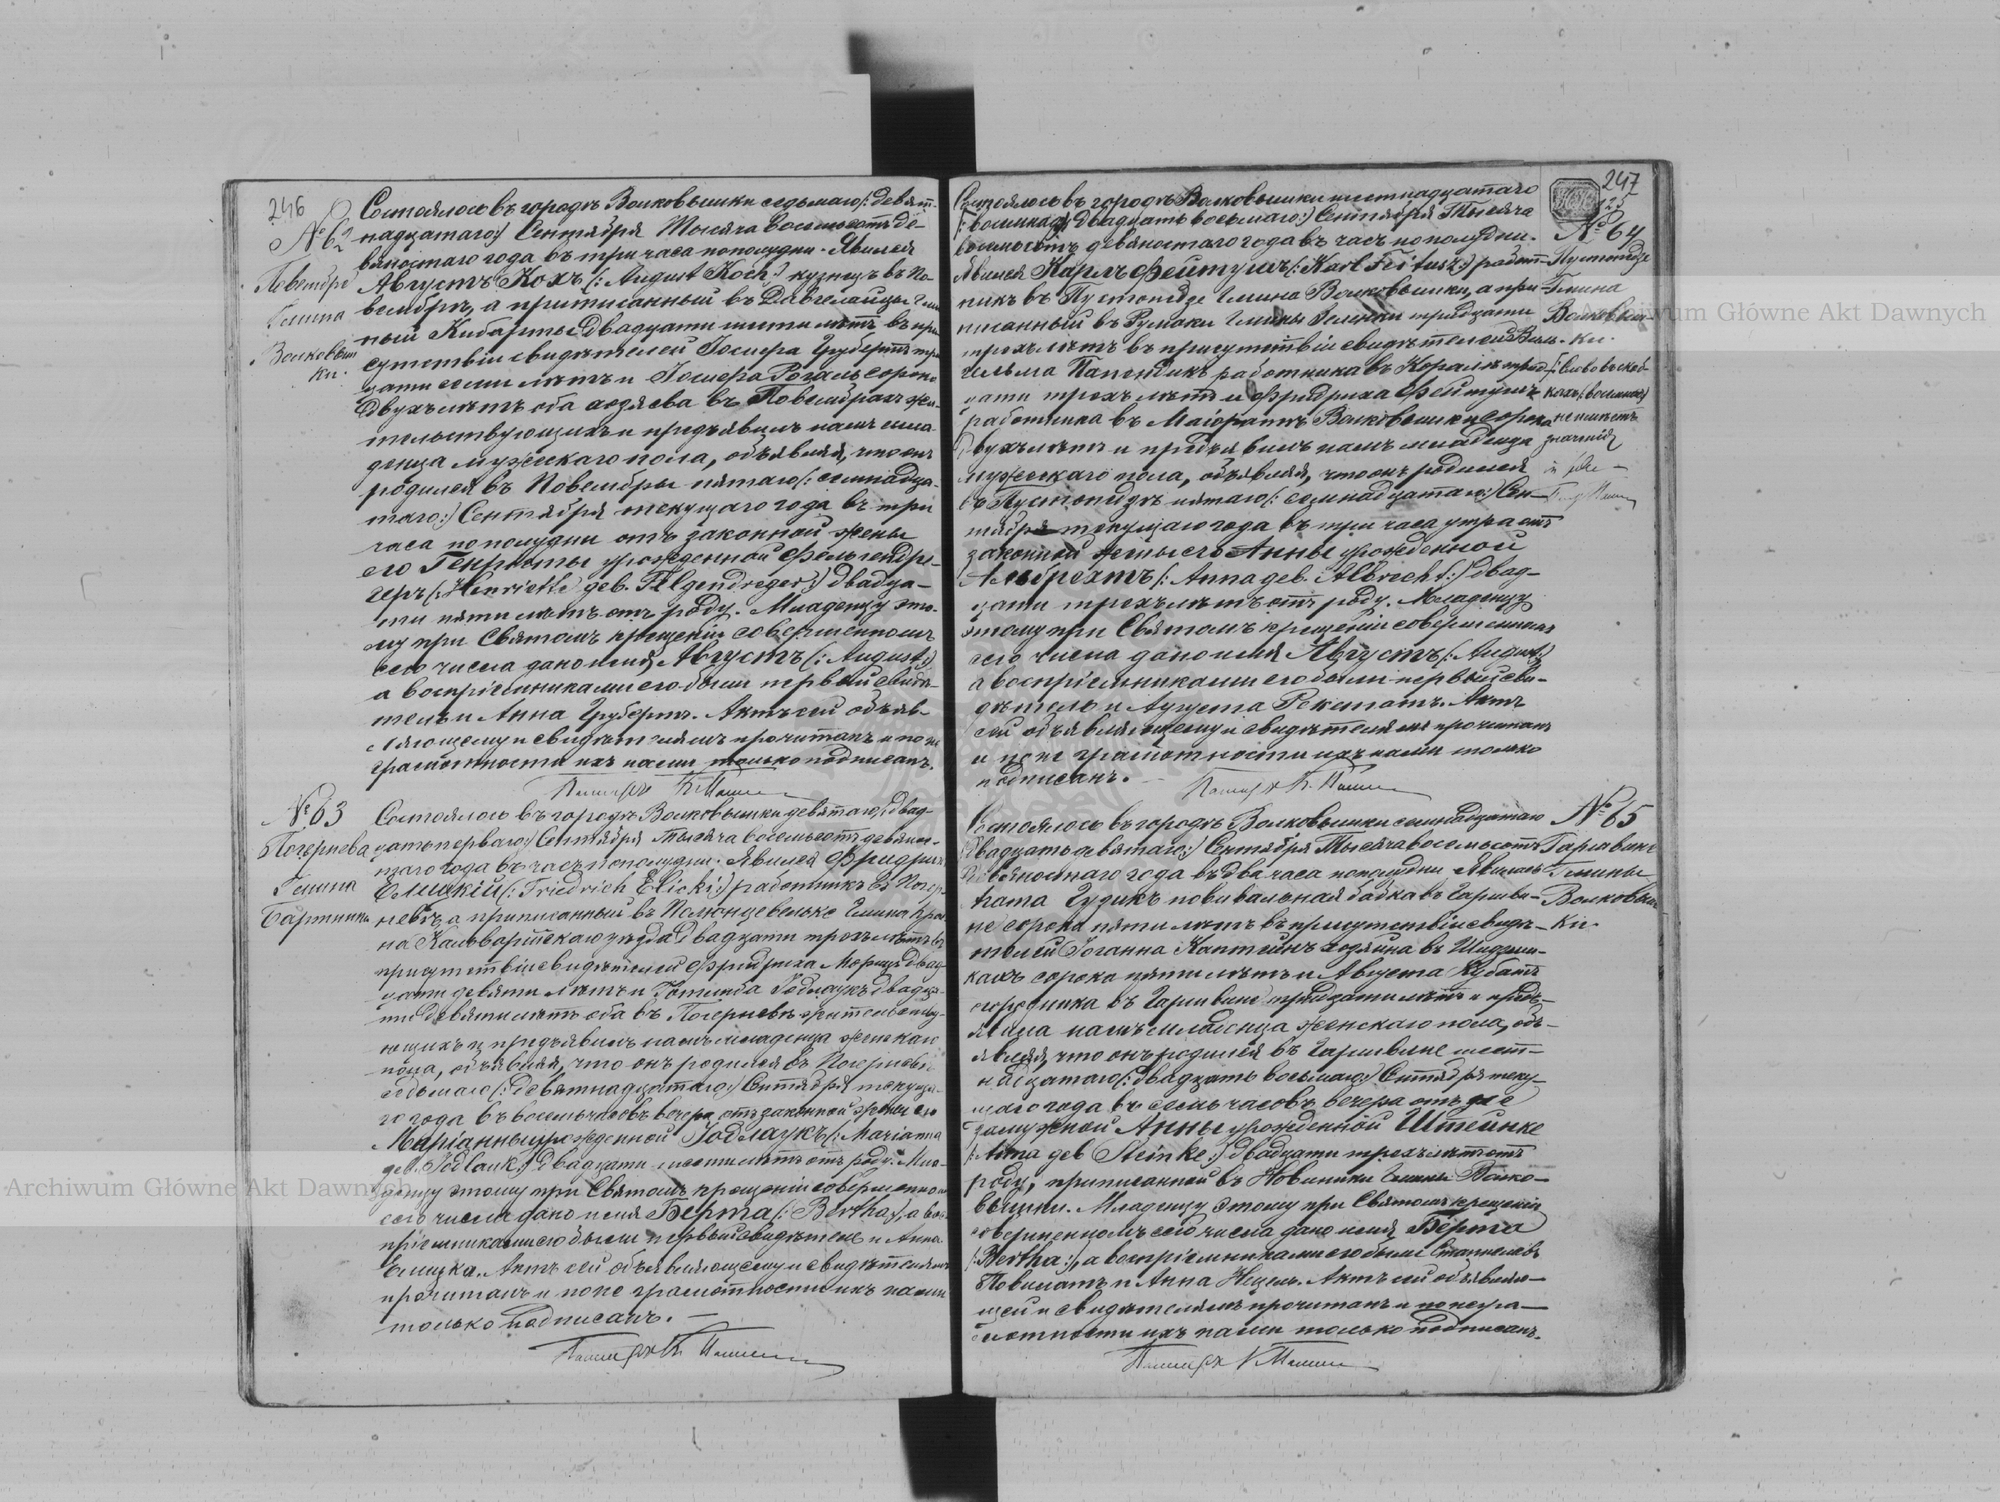 246
№ 62
Гмина
Волковыш
ки.
Состоялось въ городѣ Волковышки седьмаго (: девят-
надцатаго :) Сентября Тысяча восемьсотъ де-
вяностаго года въ три часа пополудни. Явился
Августъ Кохъ (: August Koch :) кузнецъ въ По-
а приписанный въ
ный Кибарты двадцати шести лѣтъ, въ при
сутствіи свидѣтелей Гру́бертъ три
дцати семи лѣтъ и Рогаль сорока
двухъ лѣтъ оба хозяева въ жи-
тельствующихъ и предъявилъ намъ мла
денца мужескаго пола, объявляя, что онъ
родился въ пятаго (: семнадца-
таго :) Сентября текущаго года въ три
часа пополудни отъ законной жены
его Генріэты урожденной Фельгендре-
геръ (: Henriette geb. Felgendreger :) двадца-
ти пяти лѣтъ отъ роду. Младенцу это-
му при Святомъ крещеніи совершенномъ
сего числа дано имя Августъ (: August :)
а воспріемниками его были первый свидѣ-
тель и Анна Грубертъ. Актъ сей объяв-
ляющему и свидѣтелямъ прочитанъ и по не
грамотности ихъ нами только подписанъ.
Пасторъ К.
№ 63
Погернева
Гмина
Бартники
Состоялось въ городѣ Волковышки девятаго (: двад-
цать перваго :) Сентября тысяча восемьсотъ девянос-
таго года въ часъ пополудни. Явился Фридрихъ
Елицкій (: Friedrich Elicki :) работникъ въ Погер-
невѣ, а приписанный въ Гмина
на Кальварійскаго уѣзда двадцати трехъ лѣтъ въ
присутствіи свидѣтелей Фридриха Морицъ двад-
цати девяти лѣтъ и Готлиба Іодлаукъ двадца-
ти девяти лѣтъ оба въ Погерневѣ жительству-
ющихъ и предъявилъ намъ младенца женскаго
пола, объявляя, что онъ родился въ Погерневѣ
седьмаго (: девятнадцатаго :) Сентября текуща-
го года въ восемь часовъ вечера отъ законной жены его
Маріанны урожденной Іодлаукъ (: Marianna
geb. Jodlauk :) двадцати шести лѣтъ отъ роду. Мла-
денцу этому при Святомъ крещеніи совершенномъ
сего числа дано имя Берта (: Bertha :), а вос-
пріемниками его были первый свидѣтель и Анна
Елицка. Актъ сей объявляющему и свидѣтелямъ
прочитанъ и по не грамотности ихъ нами
только подписанъ.
Пасторъ К.
247
125
№ 64
Гмина
Волковыш-
ки.
(: Слово въ скоб-
кахъ (: восемнад :)
не имѣетъ
значенія
Состоялось въ городѣ Волковышки шестнадцатаго
двадцать восьмаго :) Сентября Тысяча
восемьсотъ девяностаго года въ часъ пополудни.
Явился Карлъ Фейтушъ (: Karl Feitusz :) работ-
никъ въ Гмина Волковышки, а при
писанный въ Гмины тридцати
трехъ лѣтъ въ присутствіи свидѣтелей Виль-
гельма работника въ трид
цати трехъ лѣтъ и Фридриха Фейтушъ
работника въ Маіоратъ Волковышки сорока
двухъ лѣтъ и предъявилъ намъ младенца
мужескаго пола, объявляя, что онъ родился
въ пятаго (: семнадцатаго :) Сен-
тября текущаго года въ три часа утра отъ
законной жены его Анны урожденной
Альбрехтъ (: Anna geb. Albrecht :) двад-
цати трехъ лѣтъ отъ роду. Младенцу
этому при Святомъ крещеніи совершенномъ
сего числа дано имя Августъ (: August :)
а воспріемниками его были первый сви-
дѣтель и Августа Актъ
сей объявляющему и свидѣтелямъ прочитанъ
и по не грамотности ихъ нами только
подписанъ.
Пасторъ К.
№ 65
Гмины
Волковыш-
ки.
Состоялось въ городѣ Волковышки семнадцатаго
(: двадцать девятаго :) Сентября Тысяча восемьсотъ
девяностаго года въ два часа пополудни явилась
повивальная бабка въ
не сорока пяти лѣтъ въ присутствіи свидѣ-
телей Іоганна хозяина въ
кахъ сорока пяти лѣтъ и Августа Кубатъ
огородника въ тридцати лѣтъ и предъ-
явила намъ младенца женскаго пола, объ-
являя, что онъ родился въ шест-
надцатаго (: двадцать восьмаго :) Сентября теку-
щаго года въ семь часовъ вечера отъ не
замужной Анны урожденной Штейнке
(: Anna geb. Steinke :) двадцати трехъ лѣтъ отъ
роду, приписанной въ Новиники Гмины Волко-
вышки. Младенцу этому при Святомъ крещеніи
совершенномъ сего числа дано имя Берта
(: Bertha :), а воспріемниками его были
и Анна Актъ сей объявляю-
щей и свидѣтелямъ прочитанъ и по негра-
мотности ихъ нами только подписанъ.
Пасторъ К.
Archiwum Główne Akt Dawnych
Archiwum Główne Akt Dawnych